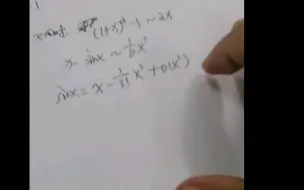 (1+x)² - 1 ~ 2x
x - sinx ~ 1/6 x³
sinx = x - 1/3! x³ + o(x³)